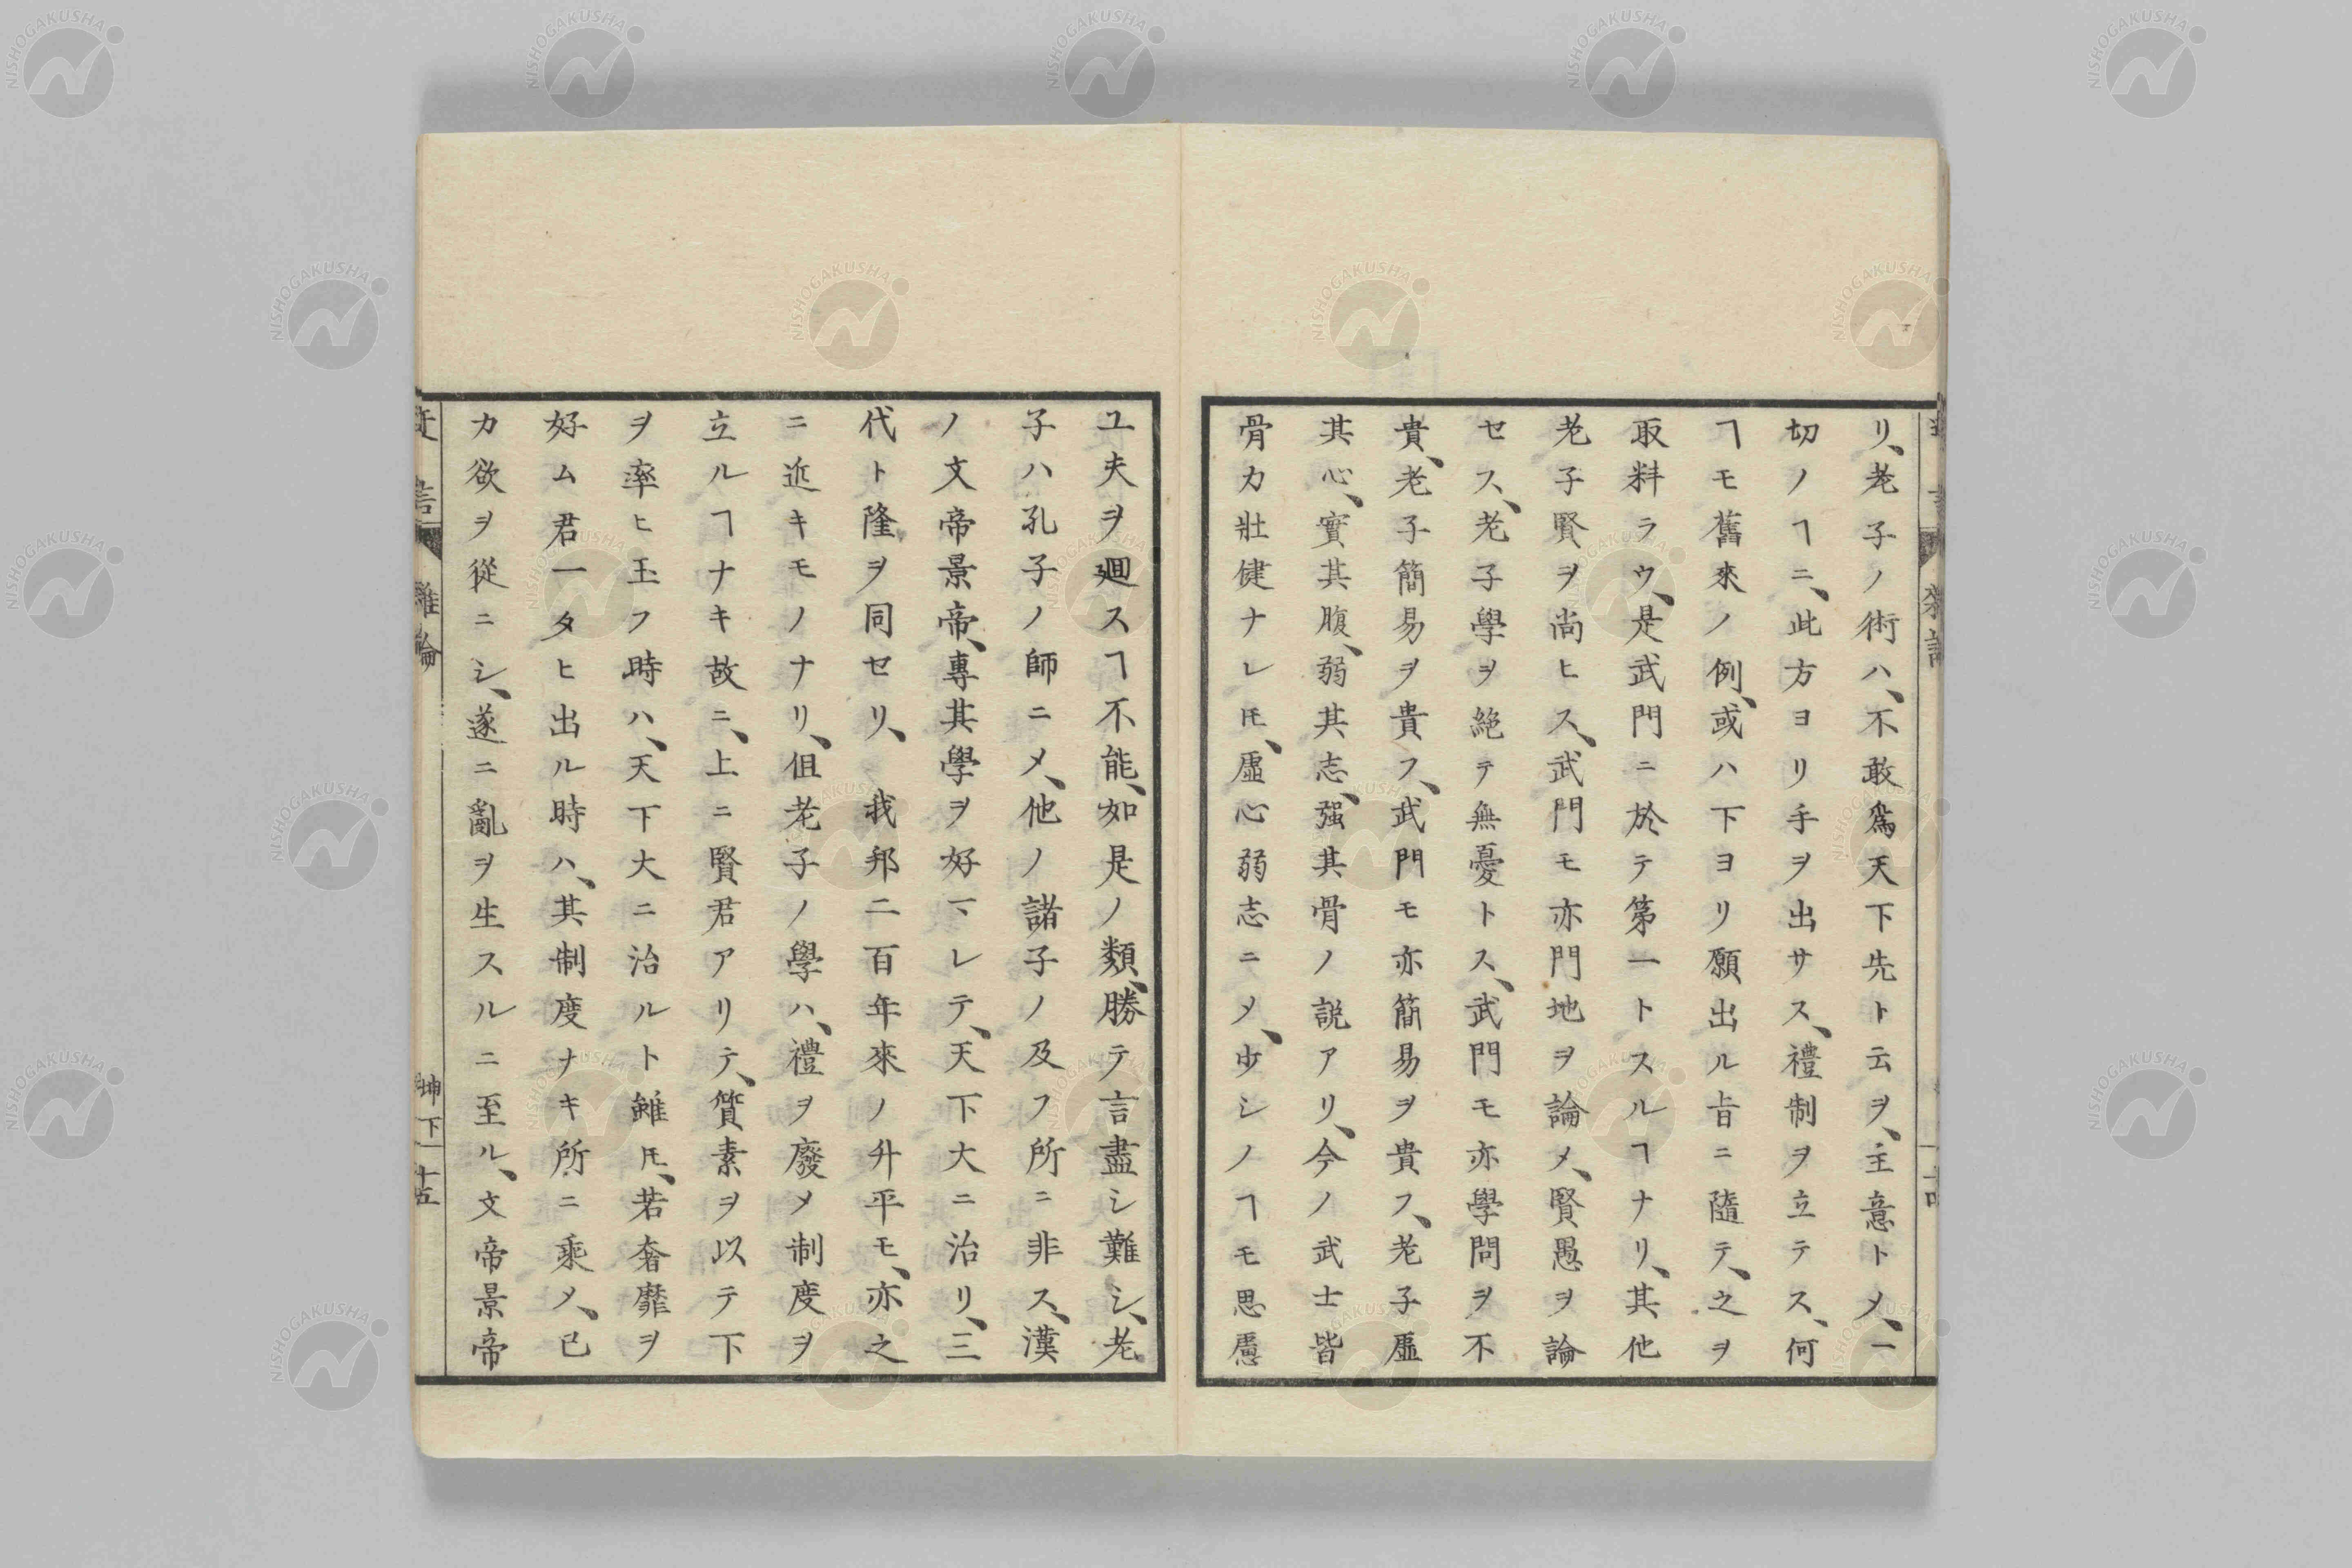 リ、老子ノ術ハ、不敢爲天下先ト云ヲ、主意トメ、一
切ノヿニ、此方ヨリ手ヲ出サス、禮制ヲ立テス、何
ヿモ舊來ノ例、或ハ下ヨリ願出ル旨ニ隨テ、之ヲ
取料ラウ、是武門ニ於テ第一トスルヿナリ、其他
老子賢ヲ尚ヒス、武門モ亦門地ヲ論メ、賢愚ヲ論
セス、老子學ヲ絶テ無憂トス、武門モ亦學問ヲ不
貴、老子簡易ヲ貴フ、武門モ亦簡易ヲ貴フ、老子虛
其心、實其腹、弱其志、强其骨ノ説アリ、今ノ武士皆
骨カ壯健ナレ𪜈、虛心弱志ニメ、少シノヿモ思慮
ユ夫ヲ廻スヿ不能、如是ノ類、勝テ言盡シ難シ、老
子ハ孔子ノ師ニメ、他ノ諸子ノ及フ所ニ非ス、漢
ノ文帝景帝、專其學ヲ好マレテ、天下大ニ治リ、三
代ト隆ヲ同セリ、我邦二百年來ノ升平モ、亦之
ニ近キモノナリ、但老子ノ學ハ、禮ヲ廢メ制度ヲ
立ルヿナキ故ニ、上ニ賢君アリテ、質素ヲ以テ下
ヲ率ヒ玉フ時ハ、天下大ニ治ルト雖𪜈、若奢靡ヲ
好ム君一タヒ出ル時ハ、其制度ナキ所ニ乘メ、已
カ欲ヲ從ニシ、遂ニ亂ヲ生スルニ至ル、文帝景帝
雜論
坤下
十五
NISHOGAKUSHA